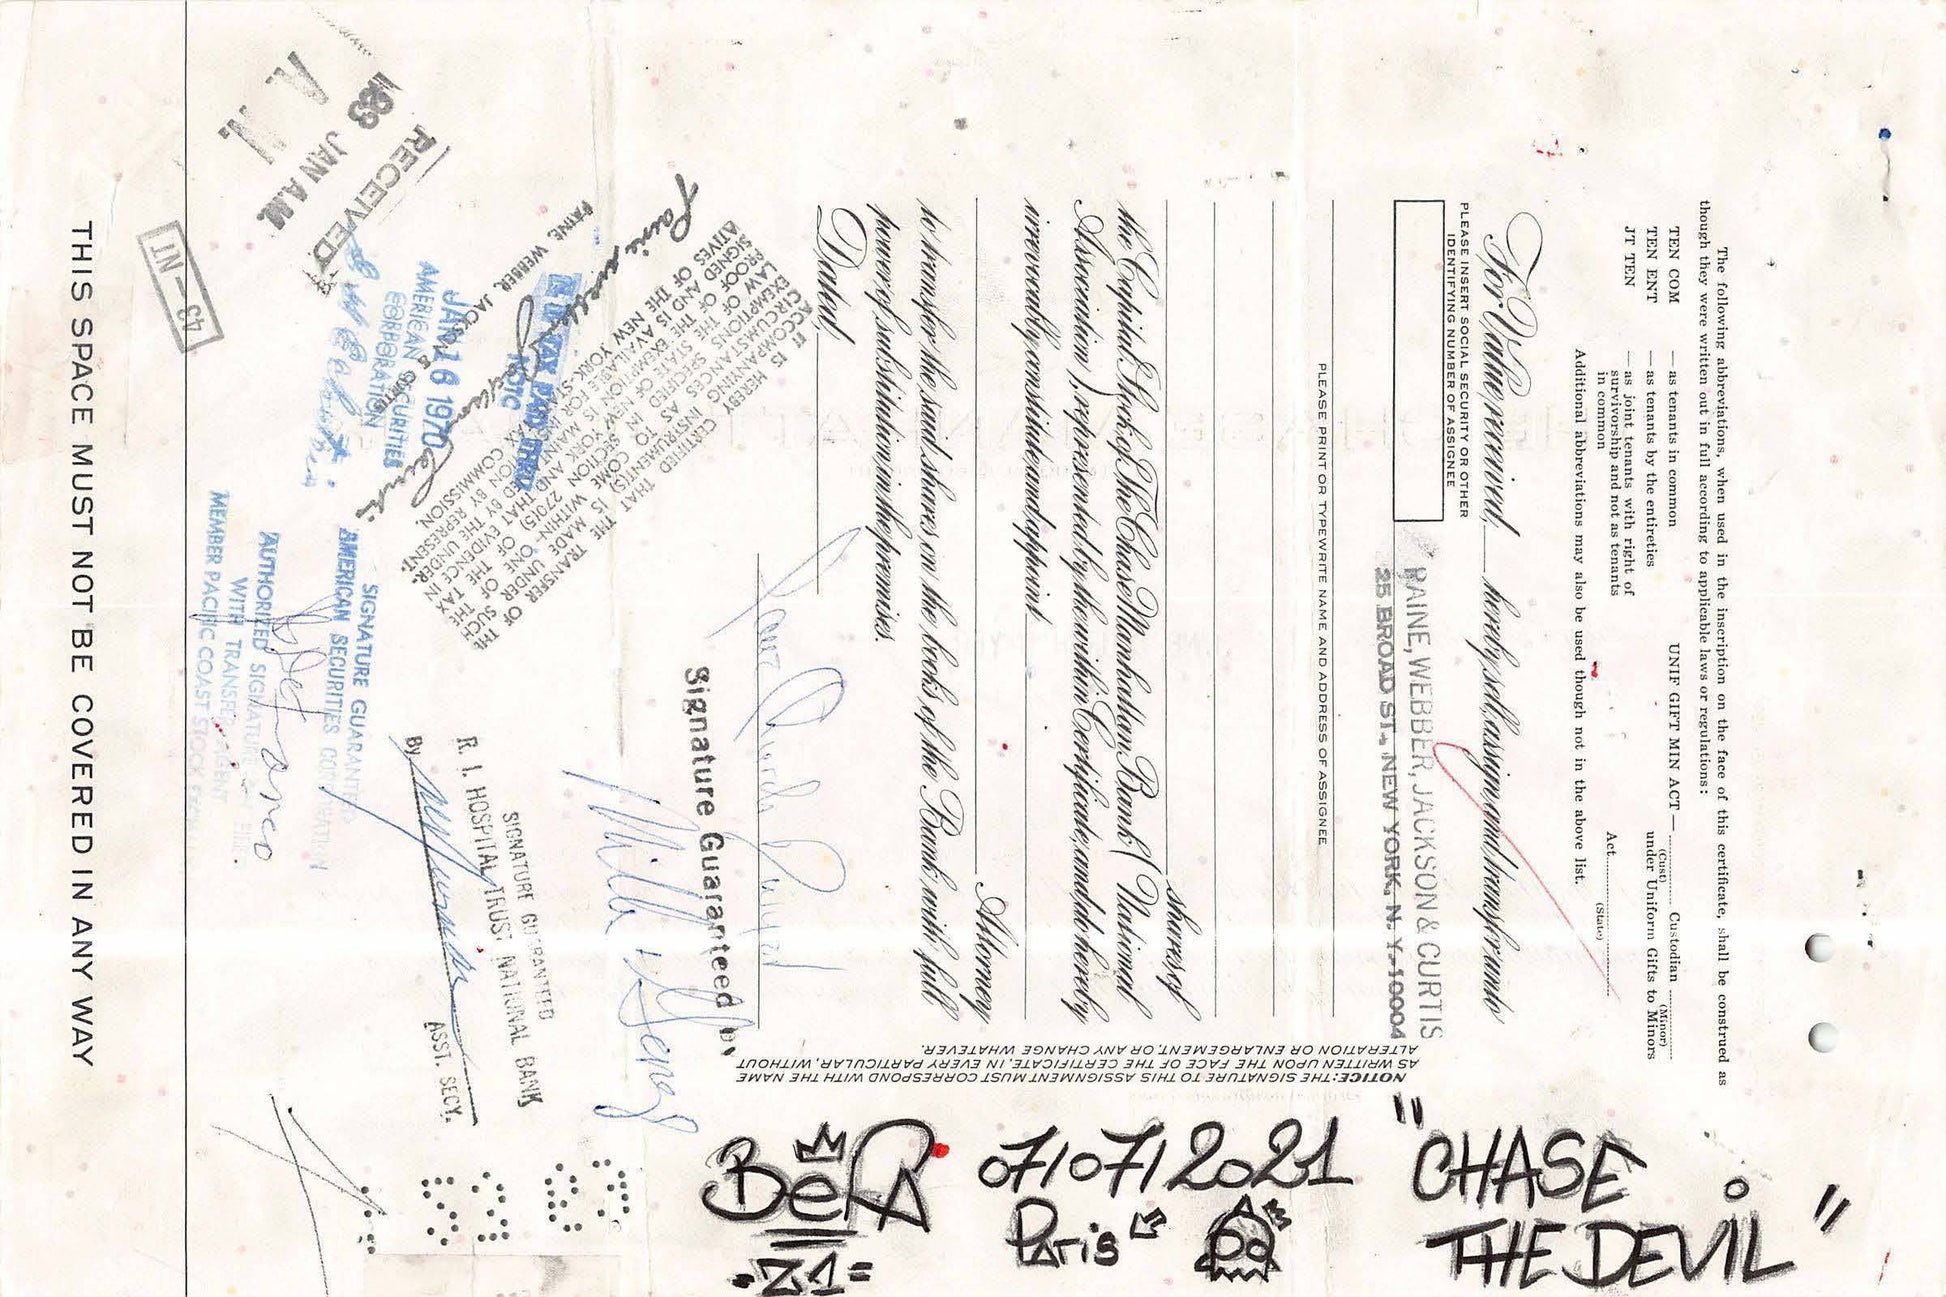 The following abbreviations, when used in the inscription on the face of this certificate, shall be construed as
though they were written out in full according to applicable laws or regulations:
TEN COM — as tenants in common
TEN ENT — as tenants by the entireties
JT TEN — as joint tenants with right of
survivorship and not as tenants
in common
UNIF GIFT MIN ACT — ........... Custodian ...........
(Cust) (Minor)
under Uniform Gifts to Minors
Act...........
(State)
Additional abbreviations may also be used though not in the above list.
For Value received, — hereby sell, assign and transfer unto
PLEASE INSERT SOCIAL SECURITY OR OTHER
IDENTIFYING NUMBER OF ASSIGNEE
PAINE, WEBBER, JACKSON & CURTIS
25 BROAD ST., NEW YORK, N. Y. 10004
PLEASE PRINT OR TYPEWRITE NAME AND ADDRESS OF ASSIGNEE
shares of
the Capital Stock of The Chase Manhattan Bank (National
Association), represented by the within Certificate, and do hereby
irrevocably constitute and appoint
Attorney
to transfer the said shares on the books of the Bank with full
power of substitution in the premises.
Dated,
NOTICE: THE SIGNATURE TO THIS ASSIGNMENT MUST CORRESPOND WITH THE NAME
AS WRITTEN UPON THE FACE OF THE CERTIFICATE, IN EVERY PARTICULAR, WITHOUT
ALTERATION OR ENLARGEMENT, OR ANY CHANGE WHATEVER.
Signature Guaranteed by
IT IS HEREBY CERTIFIED THAT THE TRANSFER OF THE
ACCOMPANYING INSTRUMENT(S) IS MADE UNDER SUCH
CIRCUMSTANCES AS TO COME WITHIN ONE OF THE
EXEMPTIONS SPECIFIED IN SECTION 270(5) OF THE TAX
LAW OF THE STATE OF NEW YORK AND THAT EVIDENCE IN
PROOF OF THIS EXEMPTION IS MAINTAINED BY THE UNDER-
SIGNED AND IS AVAILABLE FOR INSPECTION BY REPRESENT-
ATIVES OF THE NEW YORK STATE TAX COMMISSION.
PAINE, WEBBER, JACKSON & CURTIS
SIGNATURE GUARANTEED
R. I. HOSPITAL TRUST NATIONAL BANK
By
ASST. SECY.
RECEIVED
23 JAN A.M.
N.Y.
JAN 16 1970
AMERICAN SECURITIES
CORPORATION
SIGNATURE GUARANTEED
AMERICAN SECURITIES CORPORATION
AUTHORIZED SIGNATURE
WITH TRANSFER AGENT
MEMBER PACIFIC COAST STOCK
43 — NT
THIS SPACE MUST NOT BE COVERED IN ANY WAY
BeFA 07/07/2021 "CHASE
= Z1 = Paris THE DEVIL"